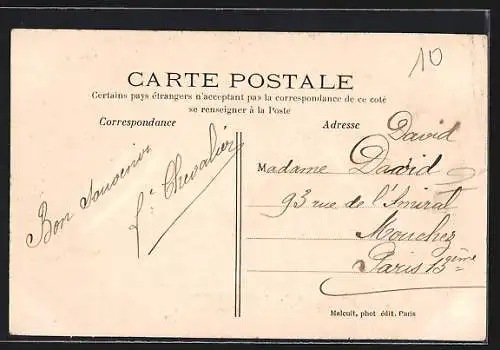 10
CARTE POSTALE
Certains pays étrangers n'acceptant pas la correspondance de ce coté
se renseigner à la Poste
Correspondance
Bon Souvenir
Chevalier
Adresse
David
Madame David
93 rue de l'Amiral
Mouchez
Paris 13ème
Malcuit, phot édit. Paris